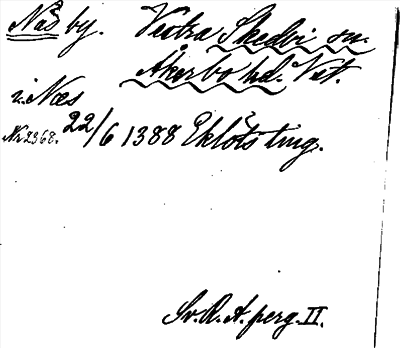 Näs by. Vestra Skedvi sn.
Åkerbo hd. Vest.
i. Næs
Nr 2368. 22/6 1388 Eklöts ting.
Sv. R. A. perg. II.